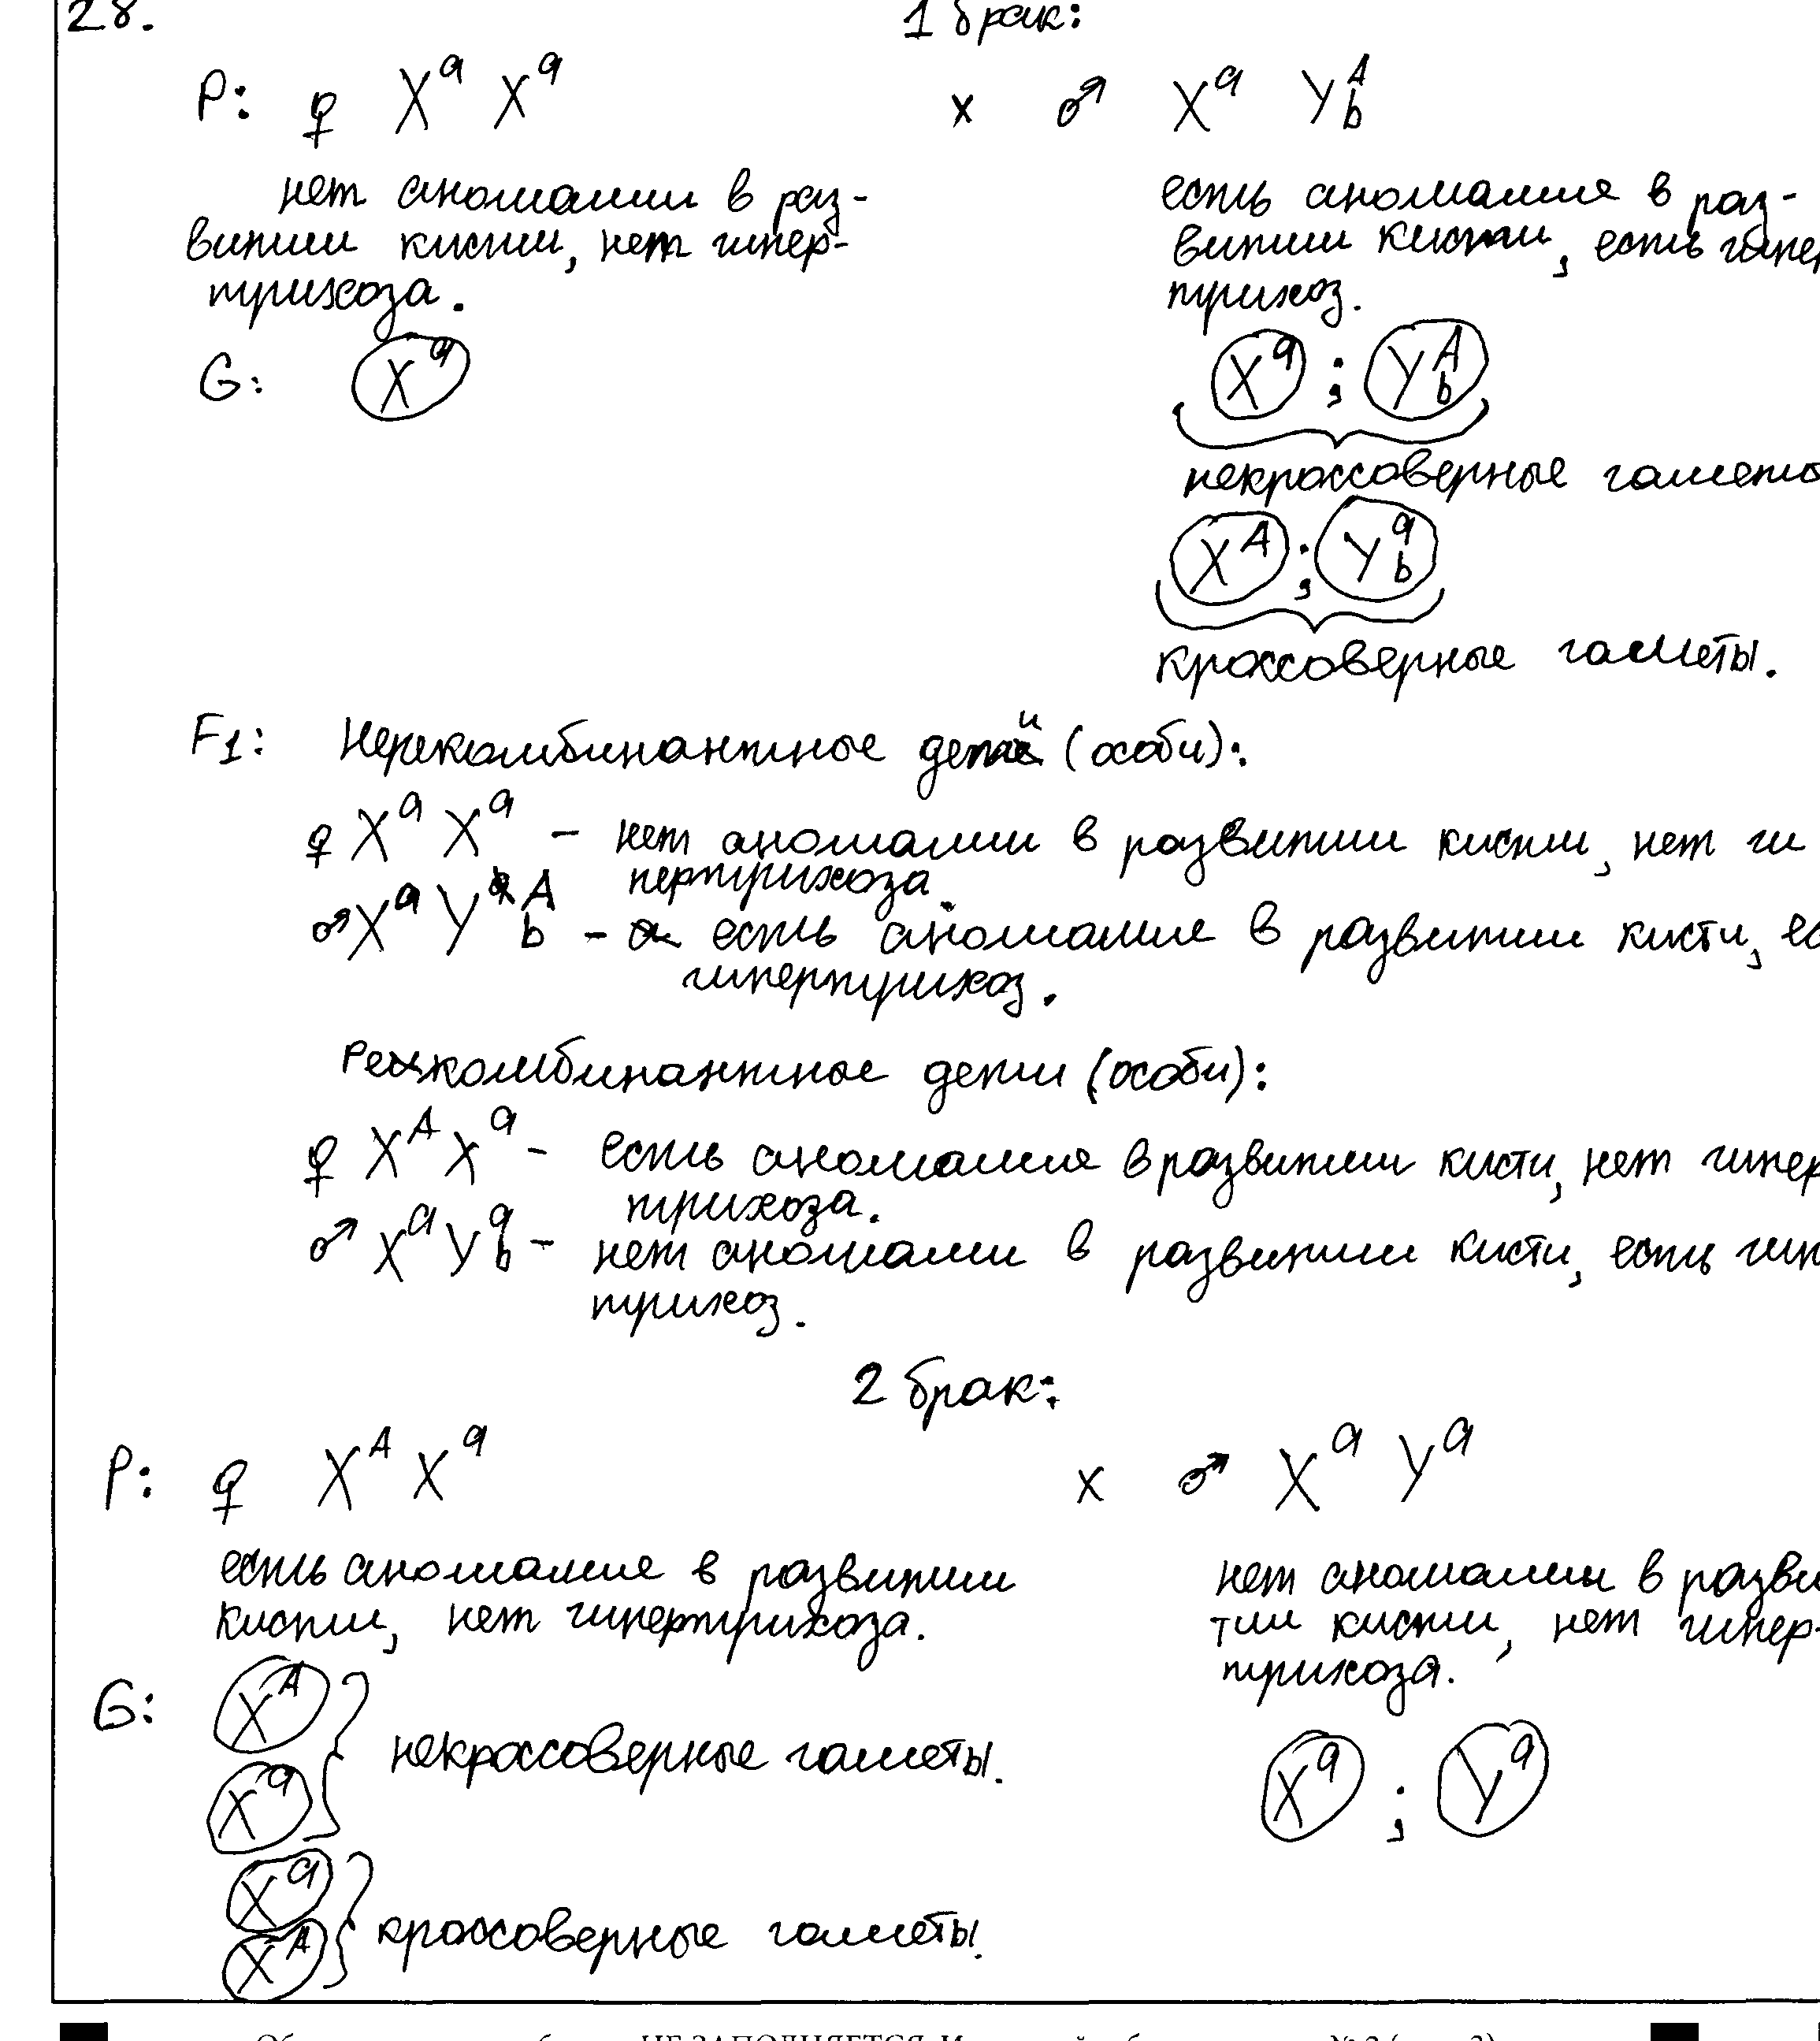 28.
1 брак:
P: ♀ X^a X^a x ♂ X^a Y^A_b
нет аномалии в раз-
витии кисти, нет гипер-
трихоза.
есть аномалия в раз-
витии кисти, есть гипер
трихоз.
G: X^a X^a ; Y^A_b
некроссоверные гаметы
X^A ; Y^a_b
кроссоверные гаметы.
F1: Нерекомбинантные дети (особи):
♀ X^a X^a – нет аномалии в развитии кисти, нет ги
пертрихоза.
♂ X^a Y^A_b – есть аномалия в развитии кисти, ес
гипертрихоз.
Рекомбинантные дети (особи):
♀ X^A X^a – есть аномалия в развитии кисти, нет гипер
трихоза.
♂ X^a Y^a_b – нет аномалии в развитии кисти, есть гип
трихоз.
2 брак:
P: ♀ X^A X^a x ♂ X^a Y^a
есть аномалия в развитии
кисти, нет гипертрихоза.
нет аномалии в разви
тии кисти, нет гипер-
трихоза.
G: X^A
X^a
некроссоверные гаметы.
X^a ; Y^a
X^a
X^A
кроссоверные гаметы.